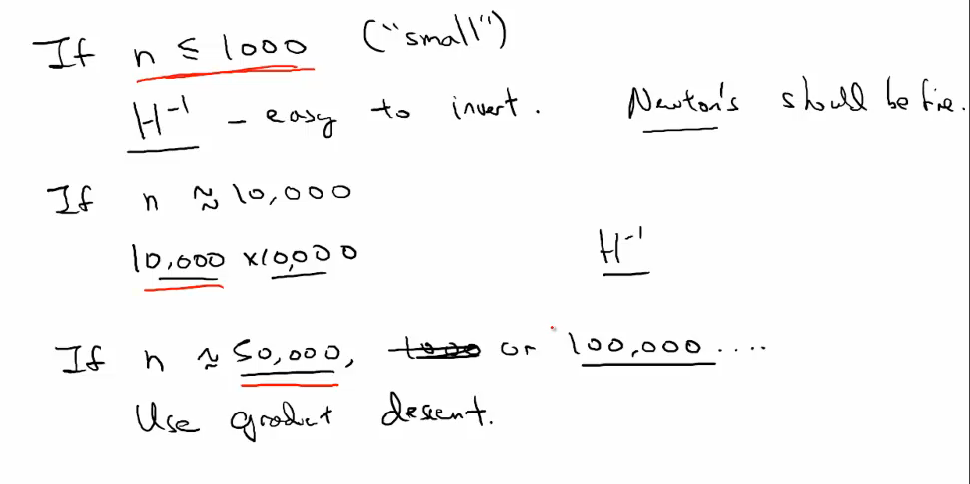 If n ≤ 1000 ("small")
H⁻¹ – easy to invert. Newton's should be fine.
If n ≈ 10,000
10,000 x 10,000 H⁻¹
If n ≈ 50,000, or 100,000 ....
Use descent.